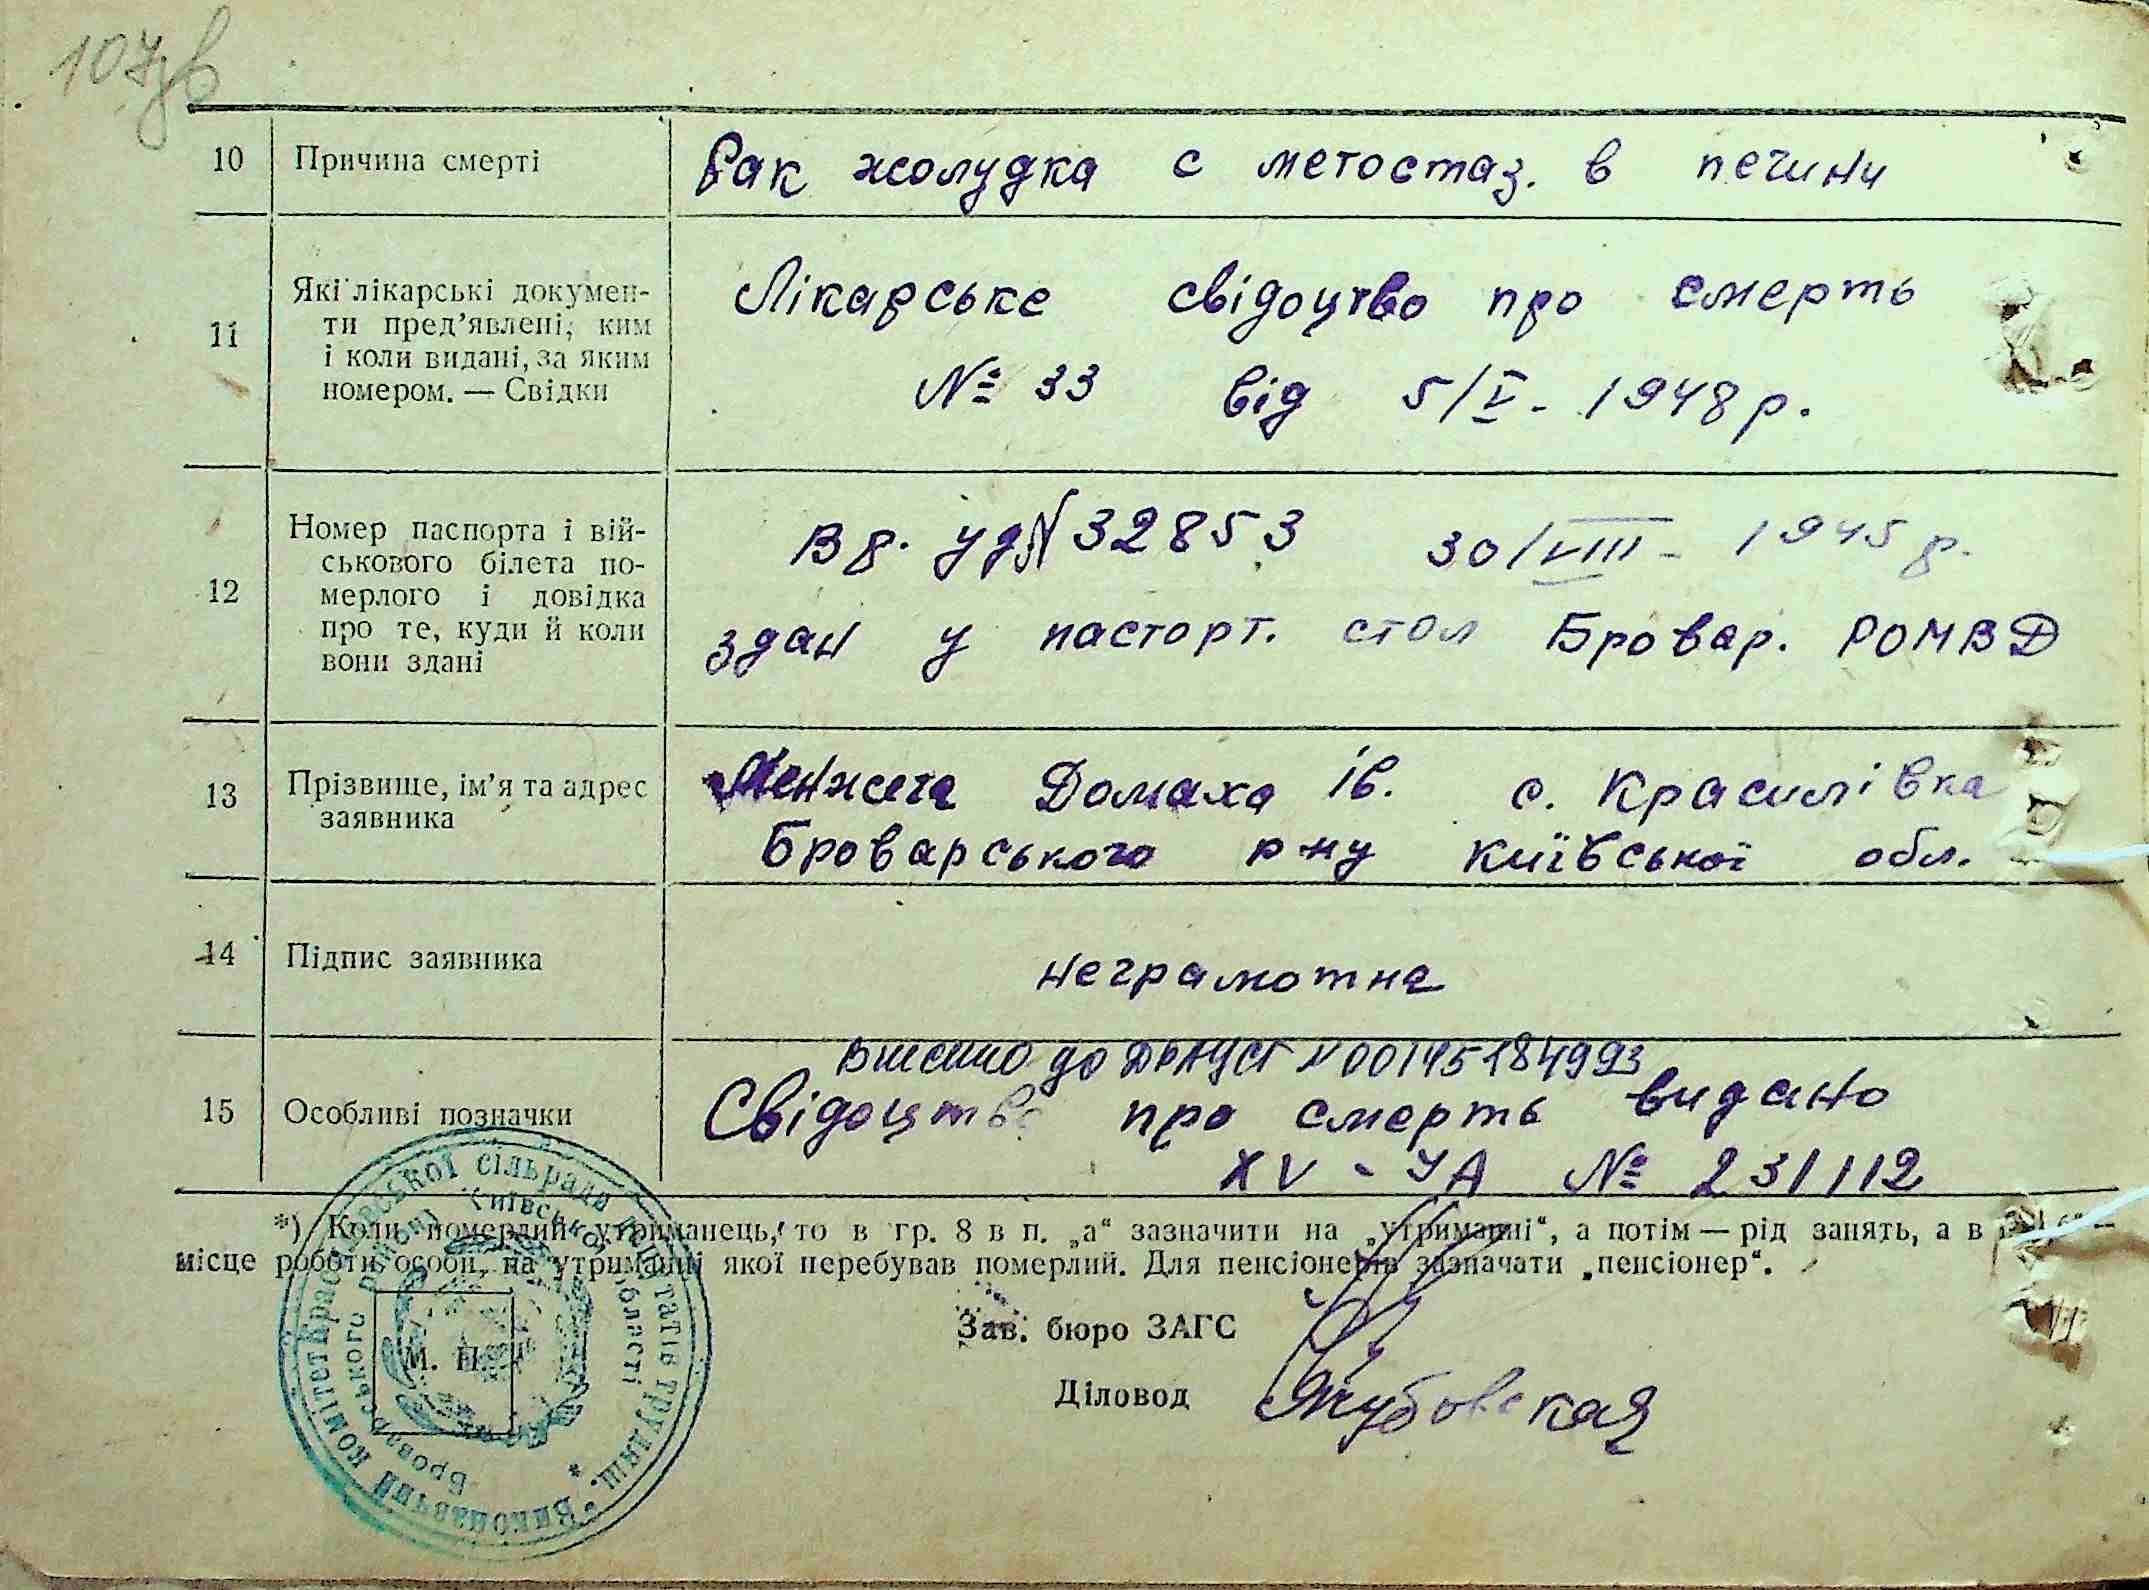 107зв
10 Причина смерті Рак жолудка с метостаз. в печини
11 Які лікарські докумен-
ти пред’явлені, ким
і коли видані, за яким
номером. — Свідки
Лікарське свідоцтво про смерть
№ 33 від 5/V - 1948 р.
12 Номер паспорта і вій-
ськового білета по-
мерлого і довідка
про те, куди й коли
вони здані
Вр. уд N 32853 30/VIII - 1945 р.
здан у паспорт. стол Бровар. РОМВД
13 Прізвище, ім’я та адрес
заявника
Менжега Домаха Ів. с. Красилівка
Броварського р-ну Київської обл.
14 Підпис заявника неграмотна
15 Особливі позначки
Внесено до ДРАЦСГ № 00145184993
Свідоцтво про смерть видано
XV - УА № 231112
*) Коли померлий утриманець, то в гр. 8 в п. „а“ зазначити на „утриманні“, а потім — рід занять, а в
місце роботи особи, на утриманні якої перебував померлий. Для пенсіонерів зазначати „пенсіонер“.
Зав. бюро ЗАГС
Діловод Якубовская
М. П.
Виконавчий комітет Красилівської сільради депутатів трудящ.
Броварського району Київської області